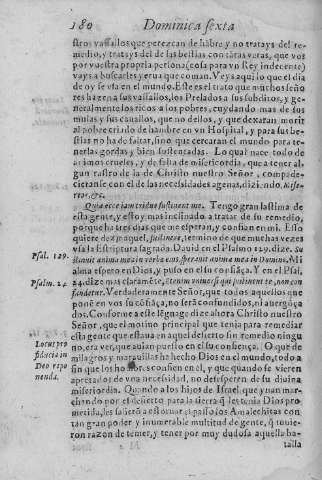 180 Dominica sexta
stros vassallos que perezcan de hãbre y no tratays del re-
medio, y tratays del de las bestias con tãtas veras, que vos
por vuestra propria persona (cosa para vn Rey indecente)
vays a buscarles yerua que coman. Veys aqui lo que el dia
de oy se vsa en el mundo. Este es el trato que muchos seño
res hazen a sus vassallos, los Prelados a sus subditos, y ge-
neralmente los ricos a los pobres, cuydando mas de sus
mulas y sus cauallos, que no dellos, y que dexaran morir
al pobre criado de hambre en vn Hospital, y para sus bes-
tias no ha de faltar, sino que cercaran el mundo para te-
nerlas gordas y bien sustentadas. Lo qual nace todo de
animos crueles, y de falta de misericordia, que a tener al-
gun rastro de la de Christo nuestro Señor, compade-
cieranse con el de las necesidades agenas, diziendo, Mise-
reor, &c.
Quia ecce iam triduo sustinent me. Tengo gran lastima de
esta gente, y estoy mas inclinado a tratar de su remedio,
porque ha tres dias que me esperan, y confian en mi. Esto
quiere dezir aquel, sustinere, termino de que muchas vezes
vsa la Escriptura sagrada. Dauid en el Psalmo 129. dize. Su
Psal. 129.
stinuit anima mea in verbo eius, sperauit anima mea in Domino. Mi
alma espero en Dios, y puso en el su confiãça. Y en el Psal.
Psalm. 24.
24. dize mas claramẽte, etenim vniuersi qui sustinent te, non con
fundentur. Verdaderamente Señor, que todos aquellos que
ponẽ en vos su cõfiãça, no serã confundidos, ni auergõça
dos. Conforme a este lẽguage dize ahora Christo nuestro
Señor, que el motiuo principal que tenia para remediar
esta gente que estaua en aquel desierto sin remedio ningu
no, era ver, que auian puesto en el su confiença. O que de
milagros y marauillas ha hecho Dios en el mundo, todo a
fin que los hõbres confien en el, y que quando se vieren
apretados de vna necesidad, no desesperen de su diuina
misericordia. Quando a los hijos de Israel, que yuan mar-
chando por el desierto para la tierra q̃ les tenia Dios pro-
metida, les salierõ a estoruar el passo los Amalechitas con
tan gran poder y inumerable multitud de gente, q̃ tuuie-
ron razon de temer, y tener por muy dudosa aquella ba-
talla
Locus pro
fiducia in
Deo repo
nenda.